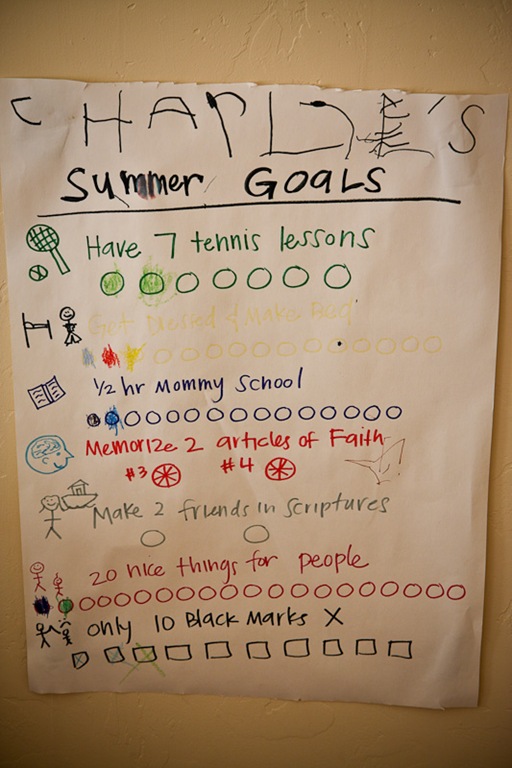 CHARLIE'S
Summer GOALS
Have 7 tennis lessons
Get Dressed & Make Bed
1/2 hr Mommy School
Memorize 2 articles of Faith
#3 #4
Make 2 friends in Scriptures
20 nice things for people
only 10 Black Marks X